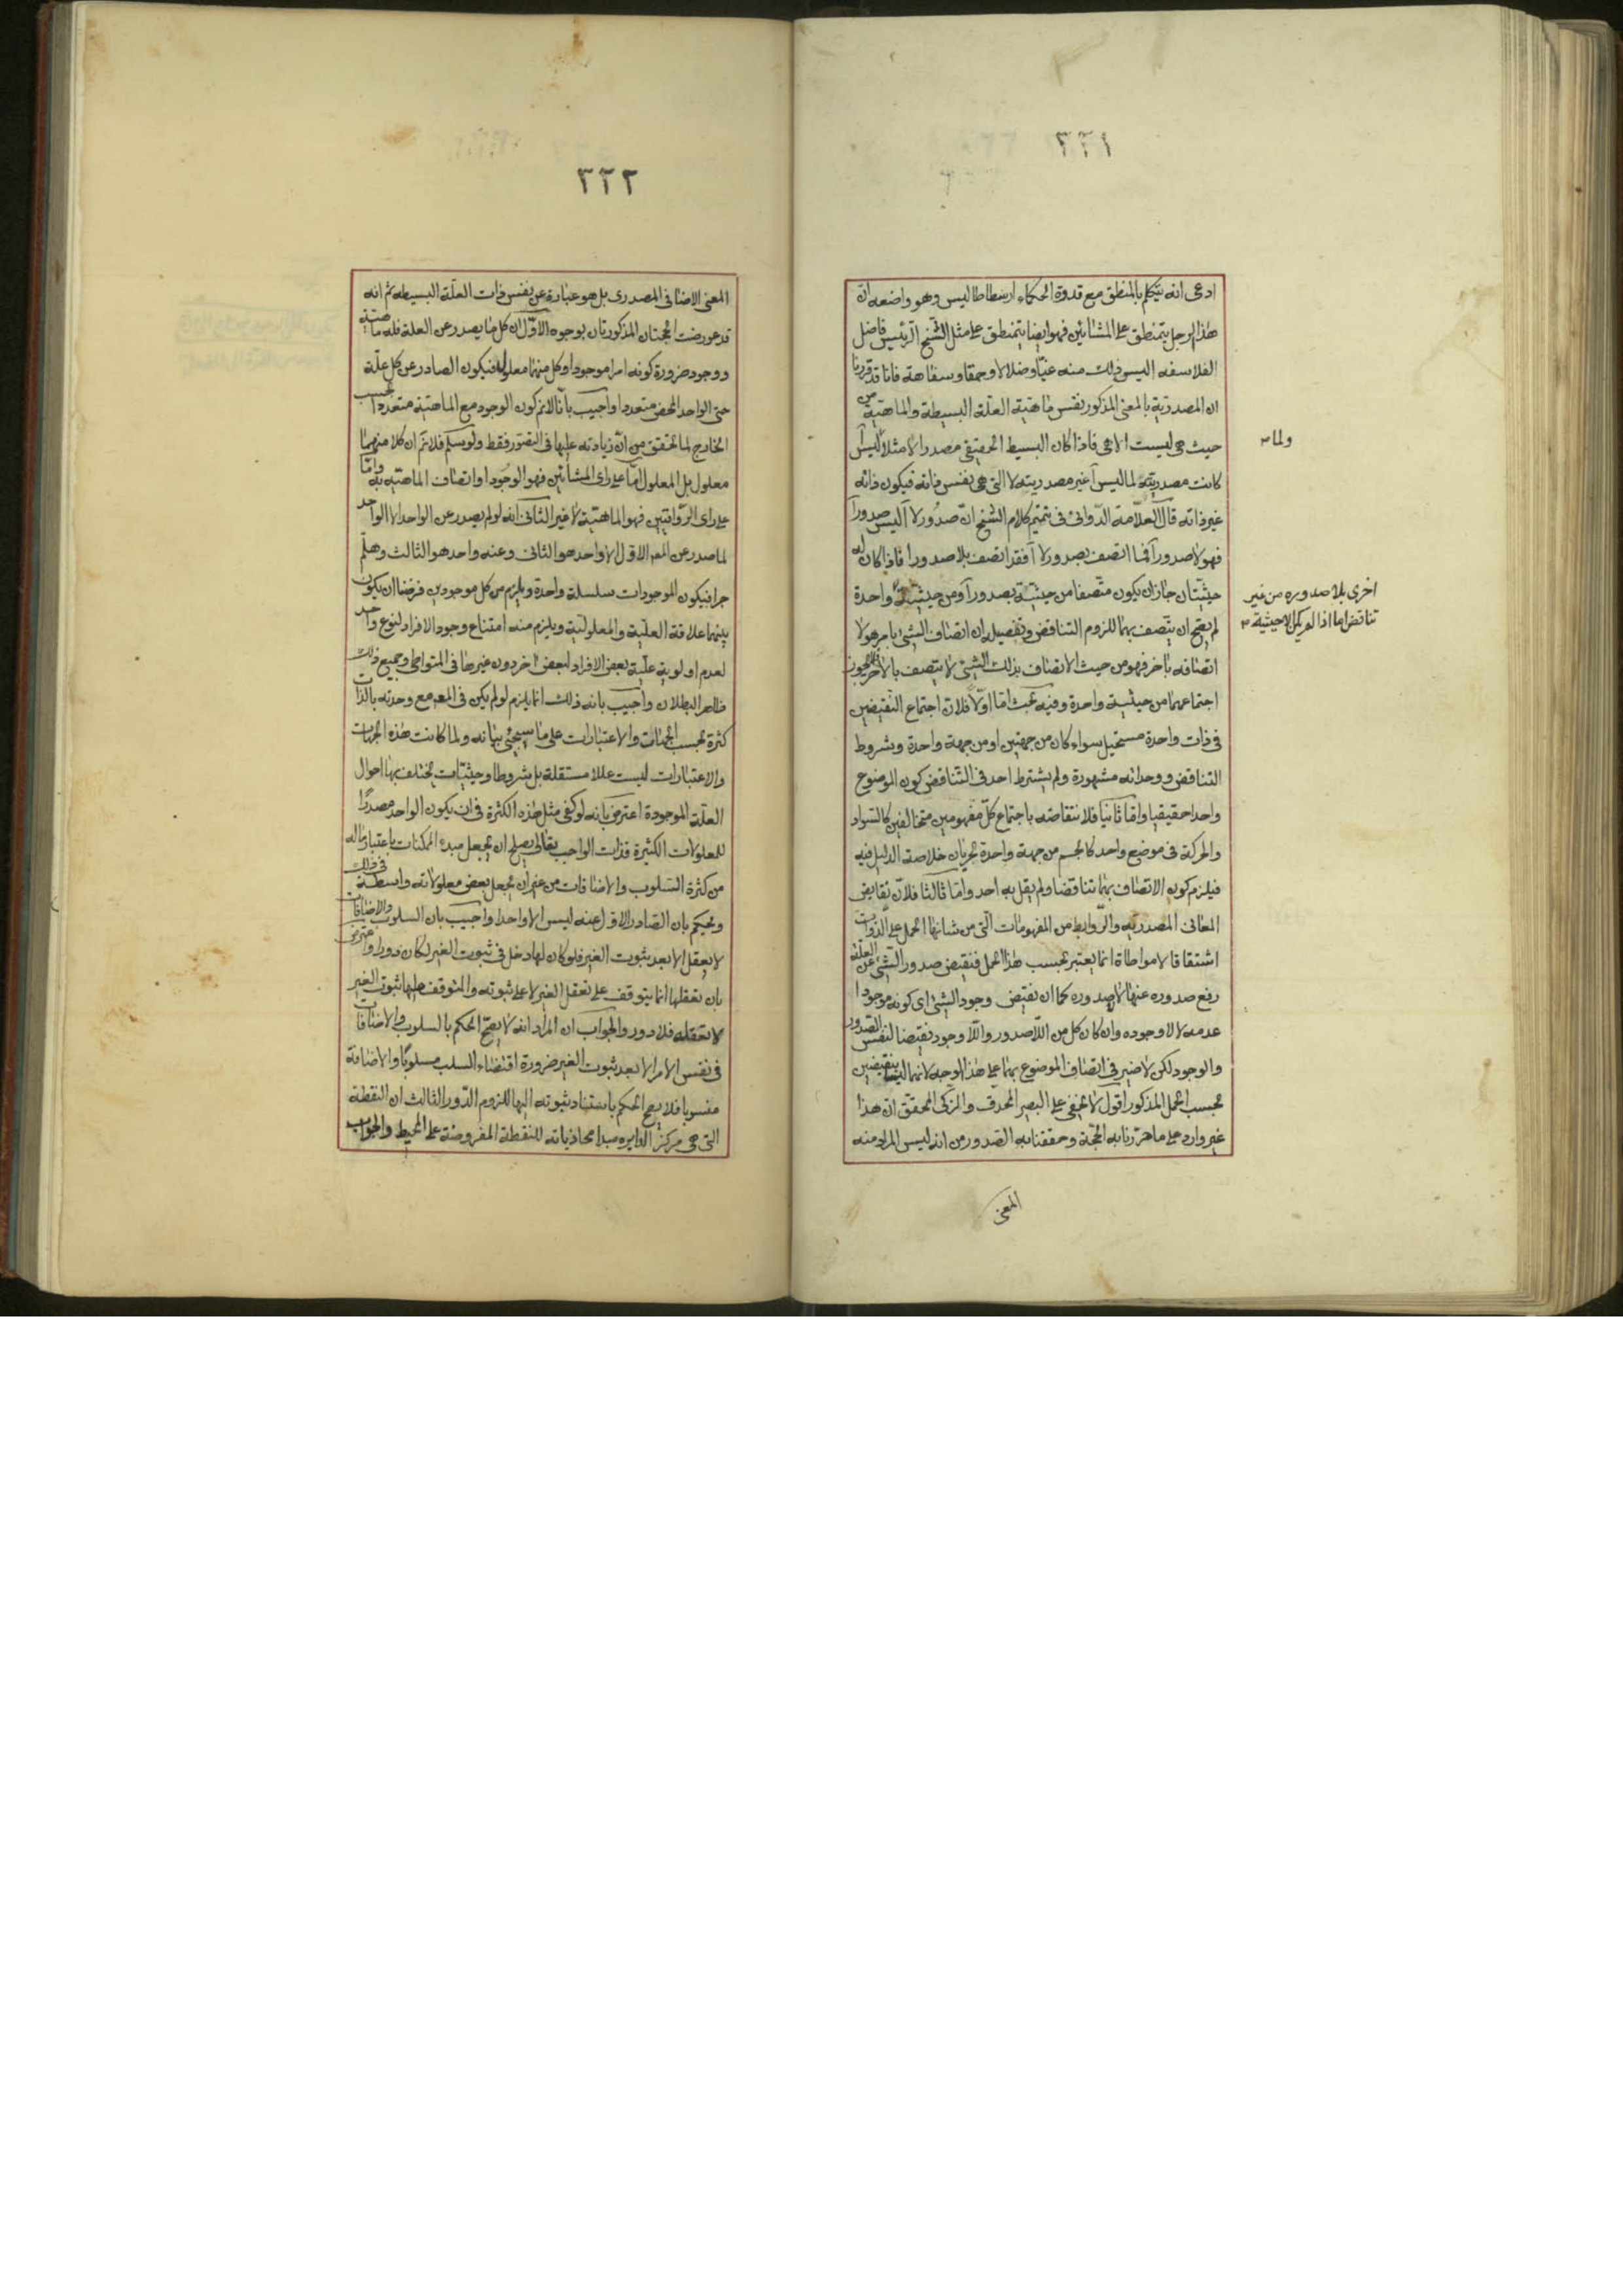 ٣٢١
ادعى انه يتكلم بالمنطق مع قدوة الحكماء ارسطاطاليس وهو واضعه ان
هذا الرجل يتمنطق على المشائين فهو ايضا يتمنطق على مثل الشيخ الرئيس فاضل
الفلاسفه اليس ذلك منه غيا وضلالا وحمقا وسفاهة فانا قد قررنا
ان المصدرية بالمعنى المذكور نفس ماهية العلة البسيطة والماهية من
حيث هى ليست الا هى فاذا كان البسيط الحقيقى مصدرا لا مثلا ولما ليس آ
كانت مصدريته لما ليس آ غير مصدريته لا التى هى نفس ذاته فيكون ذاته
غير ذاته قال العلامة الدوانى فى تتميم كلام الشيخ ان صدور لا آ ليس صدور آ
فهو لا صدور آ فما اتصف بصدور لا آ فقد اتصف بلا صدور آ فاذا كان له
حيثيتان جاز ان يكون متصفا من حيثية بصدور آ ومن حيثية واحدة
لم يصح ان يتصف بهما للزوم التناقض وتفصيله ان اتصاف الشئ بامر هو لا
اتصافه باخر فهو من حيث الاتصاف بذلك الشئ لا يتصف بالاخر فلا يجوز
اجتماعهما من حيثية واحدة وفيه بحث اما اولا فلان اجتماع النقيضين
فى ذات واحدة مستحيل سواء كان من جهتين او من جهة واحدة وشروط
التناقض ووحداته مشهورة ولم يشترط احد فى التناقض كون الموضوع
واحدا حقيقيا واما ثانيا فلانتقاضه باجتماع كل مفهومين متخالفين كالسواد
والحركة فى موضوع واحد كالجسم من جهة واحدة لجريان خلاصة الدليل فيه
فيلزم كون الاتصاف بهما تناقضا ولم يقل به احد واما ثالثا فلان نقايض
المعانى المصدرية والروابط من المفهومات التى من شانها الحمل على الذوات
اشتقاقا لا مواطاة انما يعتبر بحسب هذا الحمل فنقيض صدور الشئ عن العلة
رفع صدوره عنها لا لا صدوره كما ان نقيض وجود الشئ اى كونه موجودا
عدمه لا لا وجوده وان كان كل من اللا صدور واللا وجود نقيضا لنفس الصدور
والوجود لكن لا ضير فى اتصاف الموضوع بهما على هذا الوجه لانهما ليسا بنقيضين
بحسب الحمل المذكور اقول لا يخفى على البصير المحدق والزكى المحقق ان هذا
غير وارد على ما حررنا به الحجة وحققنا به الصدور من انه ليس المراد منه
المعنى
ولما
اخرى بلا صدوره من غير
تناقض اما اذا لم يكن الا حيثية
٣٢٢
المعنى الاضافى المصدرى بل هو عبارة عن نفس ذات العلة البسيطه ثم انه
قد عورضت الحجتان المذكورتان بوجوه الاول ان كل ما يصدر عن العلة فله ماهية
ووجود ضرورة كونه امرا موجودا وكل منهما معلول فيكون الصادر عن كل علة
حتى الواحد المحض متعددا واجيب بانا لانم كون الوجود مع الماهية متعددا بحسب
الخارج لما تحقق من ان زيادته عليها فى التصور فقط ولو سلم فلانم ان كلا منهما
معلول بل المعلول اما على راى المشائين فهو الوجود او اتصاف الماهية به واما
على راى الرواقيين فهو الماهية لا غير الثانى انه لو لم يصدر عن الواحد الا الواحد
لما صدر عن المعلول الاول الا واحد هو الثانى وعنه واحد هو الثالث وهلم
جرا فيكون الموجودات سلسلة واحدة ويلزم من كل موجودين فرضنا ان يكون
بينهما علاقة العلية والمعلولية ويلزم منه امتناع وجود الافراد لنوع واحد
لعدم اولوية علية بعض الافراد لبعض اخر دون غيرها فى المتواطى وجميع ذلك
ظاهر البطلان واجيب بانه ذلك انما يلزم لو لم يكن فى المعلول مع وحدته بالذات
كثرة بحسب الجهات والاعتبارات على ما سيجئ بيانه ولما كانت هذه الجهات
والاعتبارات ليست عللا مستقلة بل شروطا وحيثيات تختلف بها احوال
العلة الموجودة اعترض بانه لو كفى مثل هذه الكثرة فى ان يكون الواحد مصدرا
للمعلولات الكثيرة فذات الواجب تعالى يصلح ان يجعل مبدء الممكنات باعتبار ماله
من كثرة السلوب والاضافات من غير ان يجعل بعض معلولاته واسطة فى ذلك
ويحكم بان الصادر الاول عنه ليس الا واحدا واجيب بان السلوب والاضافات
لا يعقل الا بعد ثبوت الغير فلو كان لها دخل فى ثبوت الغير لكان دورا واعترض
بان تعقلها انما يتوقف على تعقل الغير لا على ثبوته والمتوقف عليها ثبوت الغير
لا تعقله فلا دور والجواب ان المراد انه لا يصح الحكم بالسلوب والاضافات
فى نفس الامر الا بعد ثبوت الغير ضرورة اقتضاء السلب مسلوبا والاضافة
منسوبا فلا يصح الحكم باستناد ثبوته اليها للزوم الدور الثالث ان النقطة
التى هى مركز الدايره مبدا محاذياته للنقطة المفروضة على المحيط والجواب